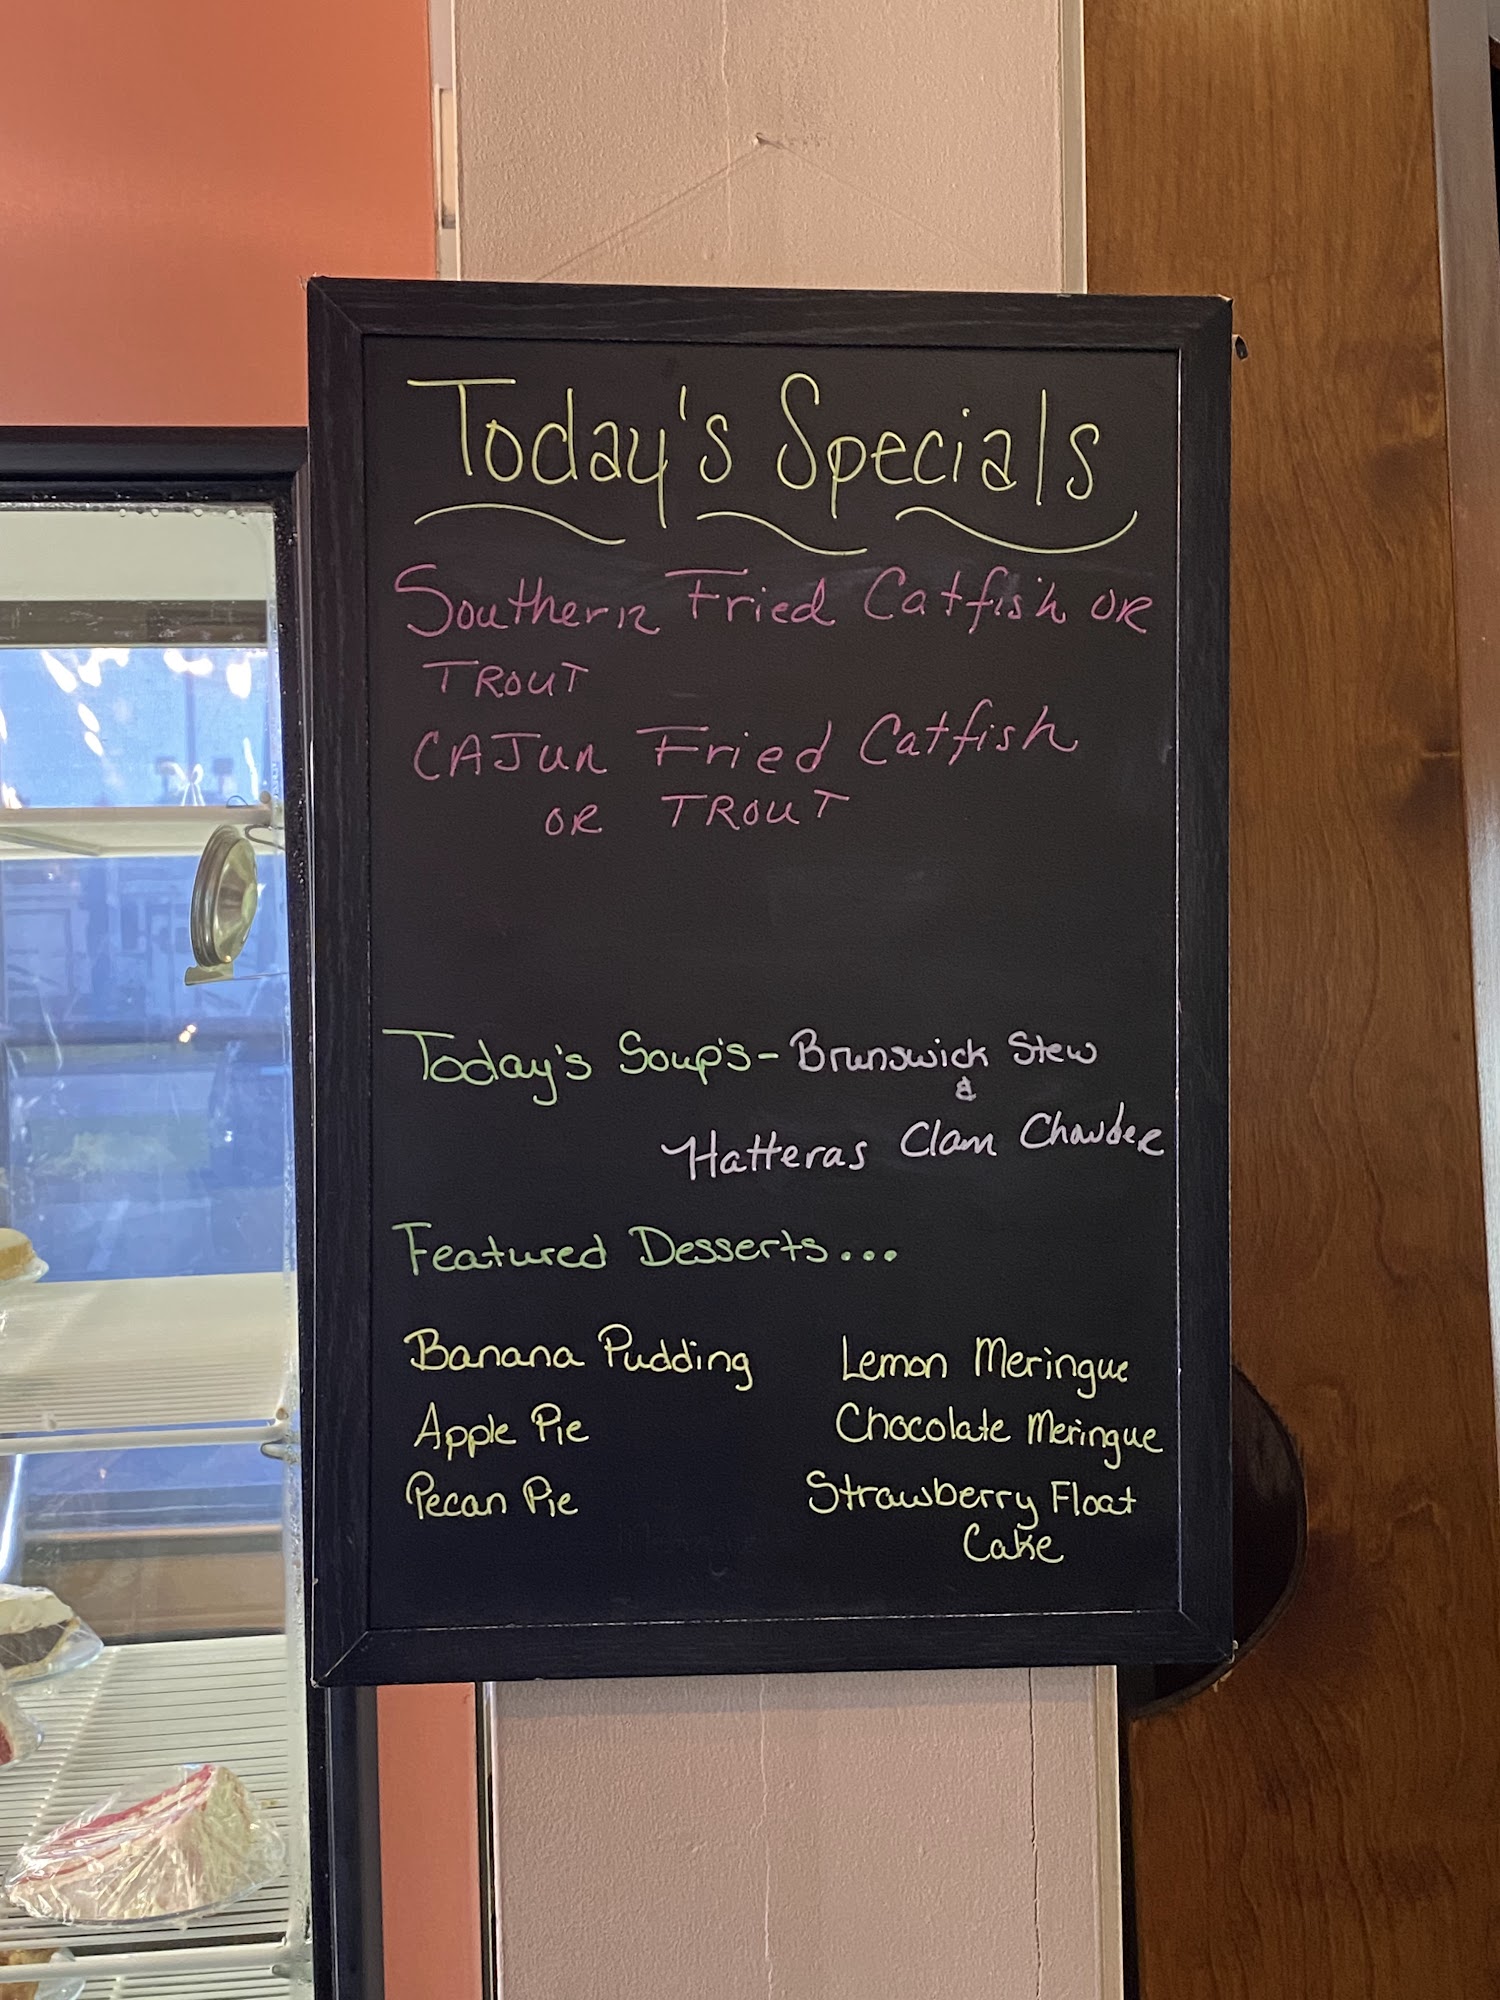 Today's Specials
Southern Fried Catfish OR
TROUT
CAJun Fried Catfish
OR TROUT
Today's Soup's - Brunswick Stew
&
Hatteras Clam Chowder
Featured Desserts...
Banana Pudding Lemon Meringue
Apple Pie Chocolate Meringue
Pecan Pie Strawberry Float
Cake